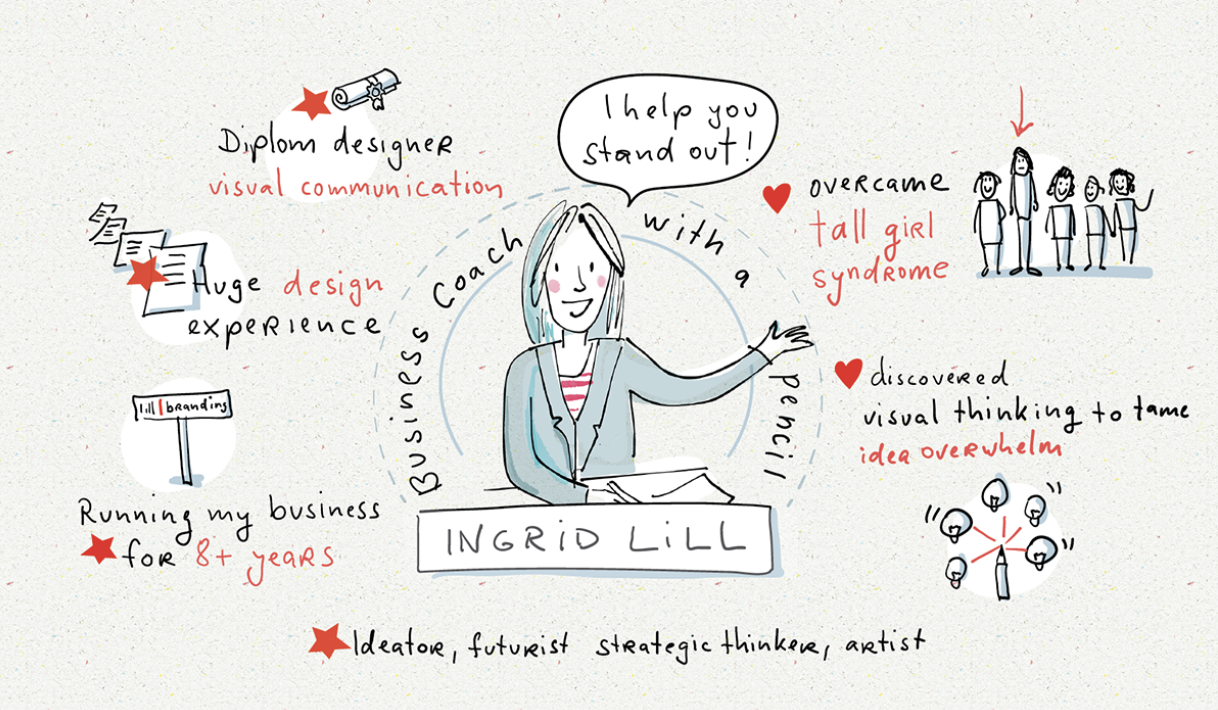 Diplom designer
visual communication
Huge design
experience
lill | branding
Running my business
for 8+ years
I help you
stand out!
Business Coach with a pencil
INGRID LILL
overcame
tall girl
syndrome
discovered
visual thinking to tame
idea overwhelm
Ideator, futurist strategic thinker, artist